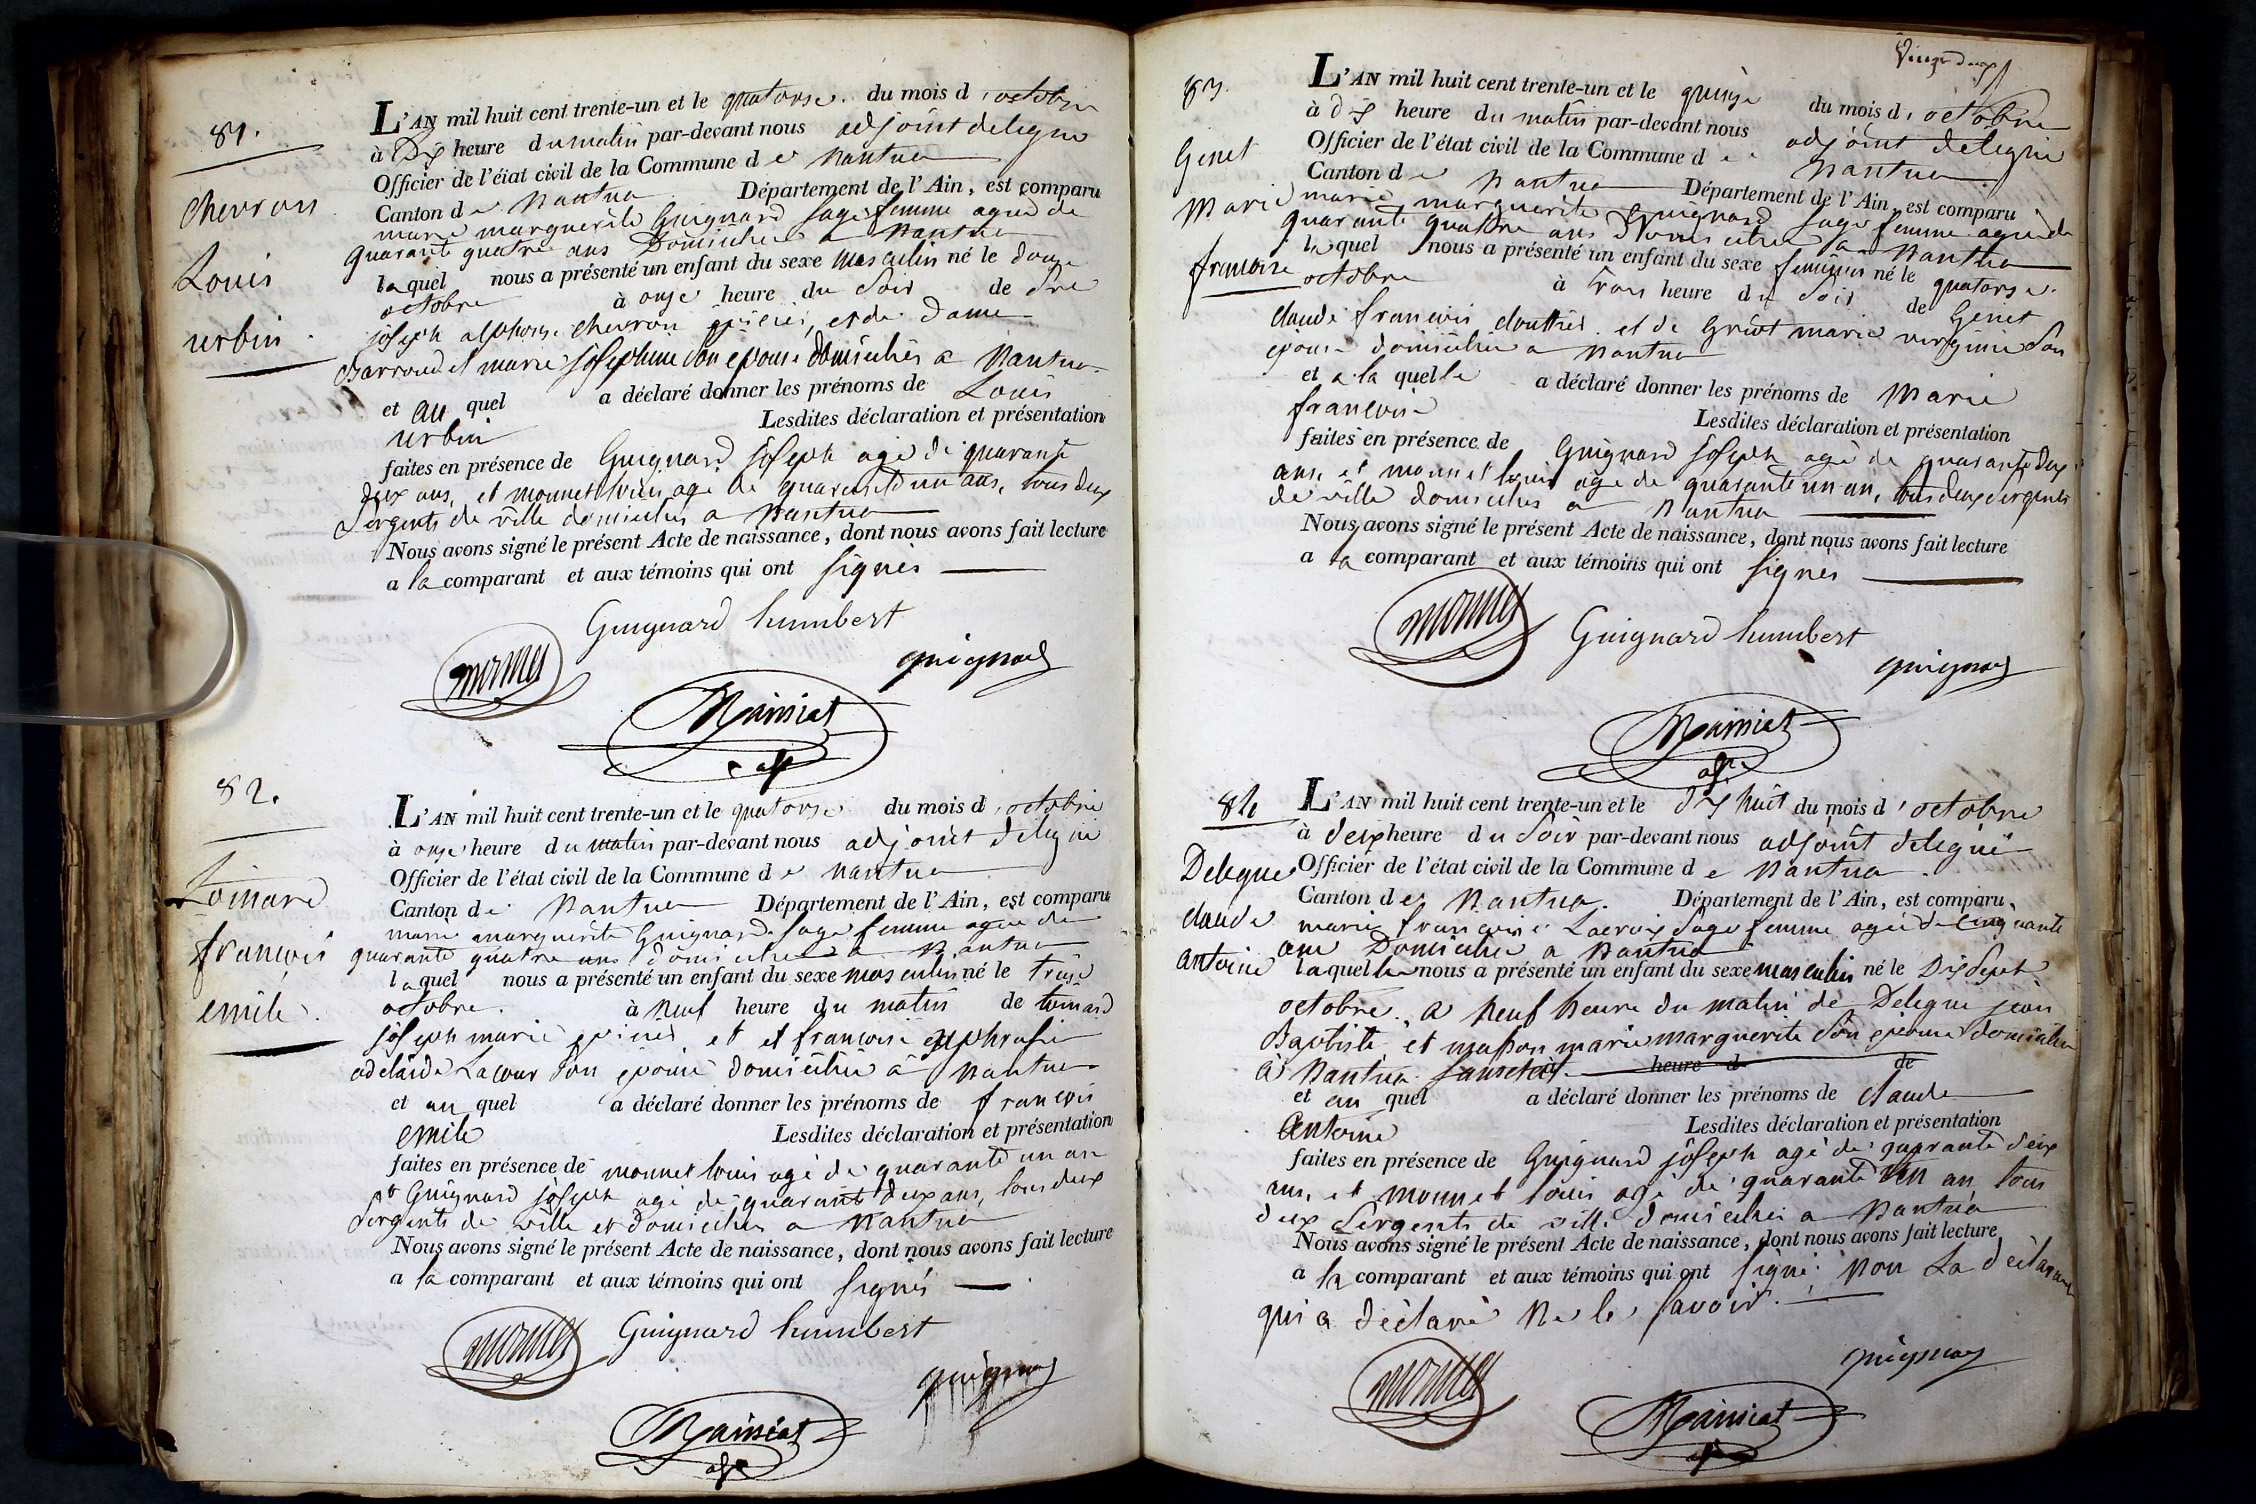 81.
Chevron
Louis
urbin.
L'AN mil huit cent trente-un et le quatorse du mois d'octobre
à dix heure du matin par-devant nous adjoint delegué
Officier de l'état civil de la Commune de Nantua
Canton de Nantua Département de l'Ain, est comparu
marie marguerite Guignard sage femme agée de
quarante quatre ans Domiciliée a Nantua
laquel nous a présenté un enfant du sexe masculin né le douze
octobre à onze heure du Soir de Sre
joseph alphonse chevron et de Dame
marie josephine son epouse domiciliés a Nantua
et au quel a déclaré donner les prénoms de Louis
urbin Lesdites déclaration et présentation
faites en présence de Guignard joseph agé de quarante
deux ans, et monnet louis agé de quarente un ans, tous deux
Sergents de ville domiciliés a Nantua
Nous avons signé le présent Acte de naissance, dont nous avons fait lecture
a la comparant et aux témoins qui ont signés
Guignard humbert
monnet
guignard
Mainiat
82.
Toinard
françois
emile.
L'AN mil huit cent trente-un et le quatorse du mois d'octobre
à onze heure du matin par-devant nous adjoint delegué
Officier de l'état civil de la Commune de Nantua
Canton de Nantua Département de l'Ain, est comparu
marie marguerite Guignard sage femme agée de
quarante quatre ans domiciliée a Nantua
laquel nous a présenté un enfant du sexe masculin né le treise
octobre à neuf heure du matin de toinard
joseph marie et et françoise euphrasie
adelaïde Lacour son epouse domiciliée à Nantua
et au quel a déclaré donner les prénoms de françois
emile Lesdites déclaration et présentation
faites en présence de monnet louis agé de quarante un an
et Guignard joseph agé de quarante deux ans, tous deux
Sergents de ville et domiciliés a Nantua
Nous avons signé le présent Acte de naissance, dont nous avons fait lecture
a la comparant et aux témoins qui ont signés
monnet
Guignard humbert
guignard
Mainiat
83.
Genet
Marie
françoise
L'AN mil huit cent trente-un et le quinze du mois d'octobre
à dix heure du matin par-devant nous adjoint delegué
Officier de l'état civil de la Commune de Nantua
Canton de Nantua Département de l'Ain, est comparu
marie marguerite Guignard sage femme agée de
quarante quattre ans Domiciliée a Nantua
laquel nous a présenté un enfant du sexe feminin né le quatorse
octobre à trois heure du Soir de Genet
claude françois cloutier et de marie virginie son
epouse domiciliée a Nantua
et a la quelle a déclaré donner les prénoms de Marie
françoise Lesdites déclaration et présentation
faites en présence de Guignard joseph agé de quarante deux
ans, et monnet louis agé de quarante un an, tous deux Sergents
de ville domiciliés a Nantua
Nous avons signé le présent Acte de naissance, dont nous avons fait lecture
a la comparant et aux témoins qui ont signés
monnet
Guignard humbert
guignard
Mainiat
84
Delegue
claude
antoine
L'AN mil huit cent trente-un et le dix huit du mois d'octobre
à deux heure du Soir par-devant nous adjoint delegué
Officier de l'état civil de la Commune de Nantua
Canton de Nantua. Département de l'Ain, est comparu
marie françoise Lacroix Sage femme agée de cinquante
ans Domiciliée a Nantua
laquelle nous a présenté un enfant du sexe masculin né le Dix Sept
octobre, a neuf heure du matin de Delegue jean
Baptiste et masson marie marguerite Son epouse domiciliée
à Nantua heure d de
et au quel a déclaré donner les prénoms de claude
Antoine Lesdites déclaration et présentation
faites en présence de Guignard joseph agé de quarante deux
ans, et monnet louis agé de quarante un an tous
deux Sergents de ville domiciliés a Nantua
Nous avons signé le présent Acte de naissance, dont nous avons fait lecture
à la comparant et aux témoins qui ont signé non La déclarante
qui a déclaré ne le savoir.
monnet
guignard
Mainiat